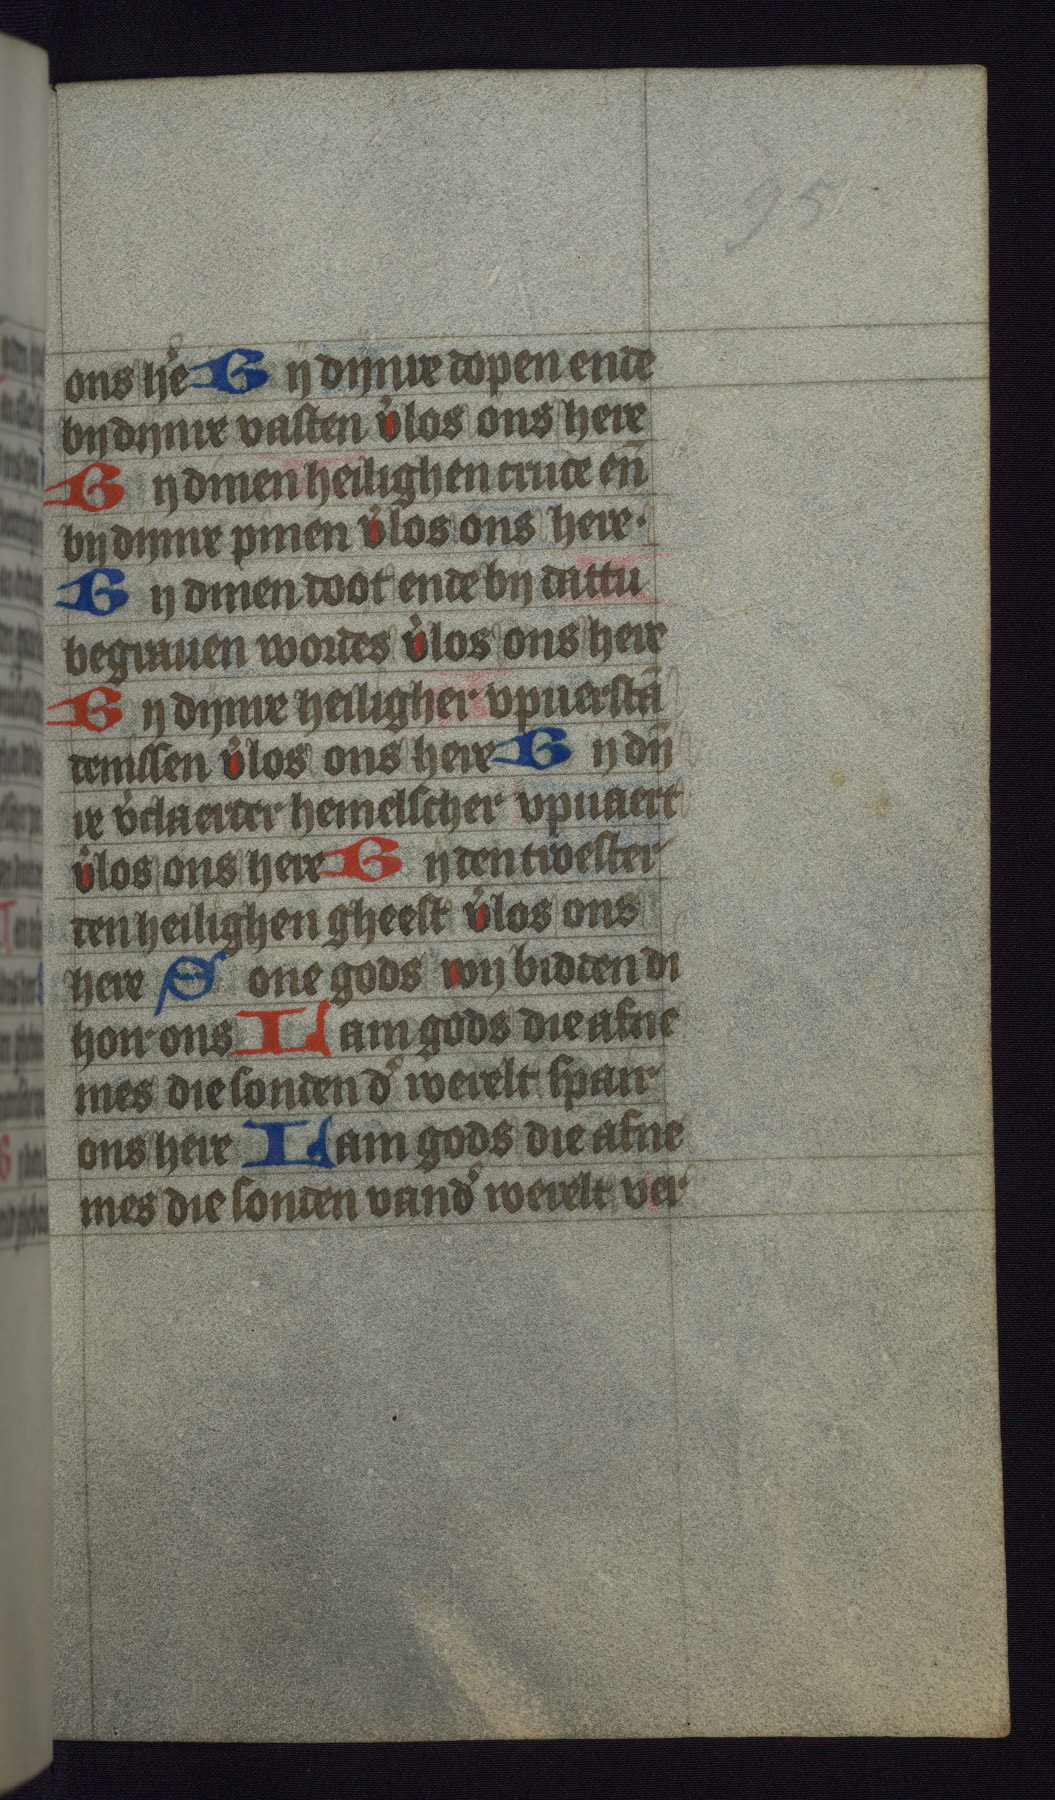 95
ons hẽ B ij dijnre dopen ende
bij dijnre vasten v̉los ons here
B ij dinen heilighen cruce eñ
bij dijnre pinen v̉los ons here·
B ij dinen doot ende bij dattu
begrauen wordes v̉los ons here
B ij dijnre heiligher vpuerstā
denissen v̉los ons here B ij dij̄
re v̉claerder hemelscher vpuaert
v̉los ons here B ij den twester
den heilighen gheest v̉los ons
here S one gods wij bidden di
hoir ons L am gods die afne
mes die sonden d̉ werelt spaer
ons here L am gods die afne
mes die sonden vand̉ werelt ver